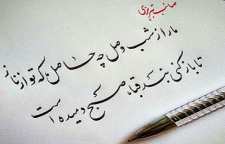 صائب تبریزی
ما را ز شب وصل چه حاصل که تو از ناز
تا باز کنی بند قبا، صبح دمیده است